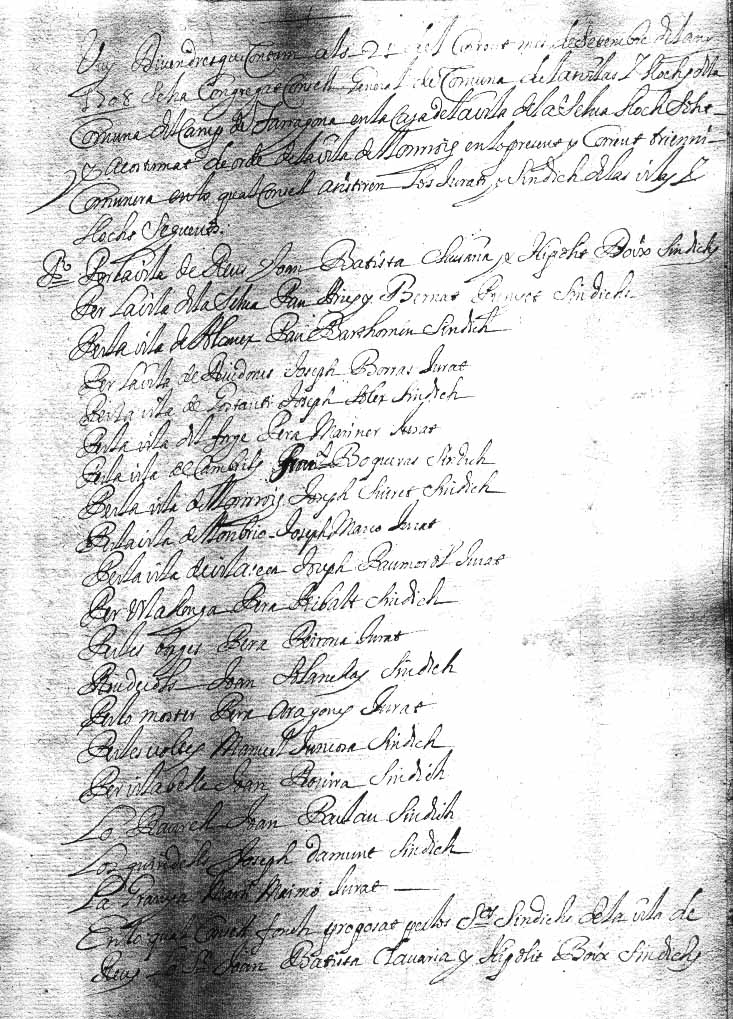 Vuy Divendres qui Contam als 21 del Corrent mes de Setembre del any
1708 Se ha Congregat Consell General de Comuna de las vilas y llochs de la
Comuna del Camp de Tarragona en la Casa de la vila de la Selva lloch
y Acostumat de orde de la vila de Monrroig en lo present y Corrent trienni
Comunera en lo qual Consell asistiren los Jurats y Sindichs de las vilas y
llochs Seguents.
Po Per la vila de Reus Joan Batista Clavaria y Hipolit Boix Sindichs
Per la vila de la Selva Pau Bernat Sindichs
Per la vila de Alcover Pau Barthomeu Sindich
Per la vila de Riudoms Joseph Borras Jurat
Per la vila de Joseph Soler Sindich
Per la vila del Forge Pera Mariner Jurat
Per la vila de Cambrils Boqueras Sindich
Per la vila de Monrroig Joseph Sindich
Per la vila de Monbrio Joseph Marco Jurat
Per la vila de vilaseca Joseph Jurat
Per Vilallonga Pera Ribalt Sindich
Per les borges Pera Jurat
Riudecols Joan Sindich
Per lo morter Pera Aragones Jurat
Per les voltes Manuel Juncosa Sindich
Per vilabella Joan Rovira Sindich
Lo Joan Sindich
Los guardells Joseph damunt Sindich
La Maimo Jurat
En lo qual Consell fonch proposat per los Srs Sindichs de la vila de
Reus Lo Sr Joan Batista Clavaria y Hipolit Boix Sindichs